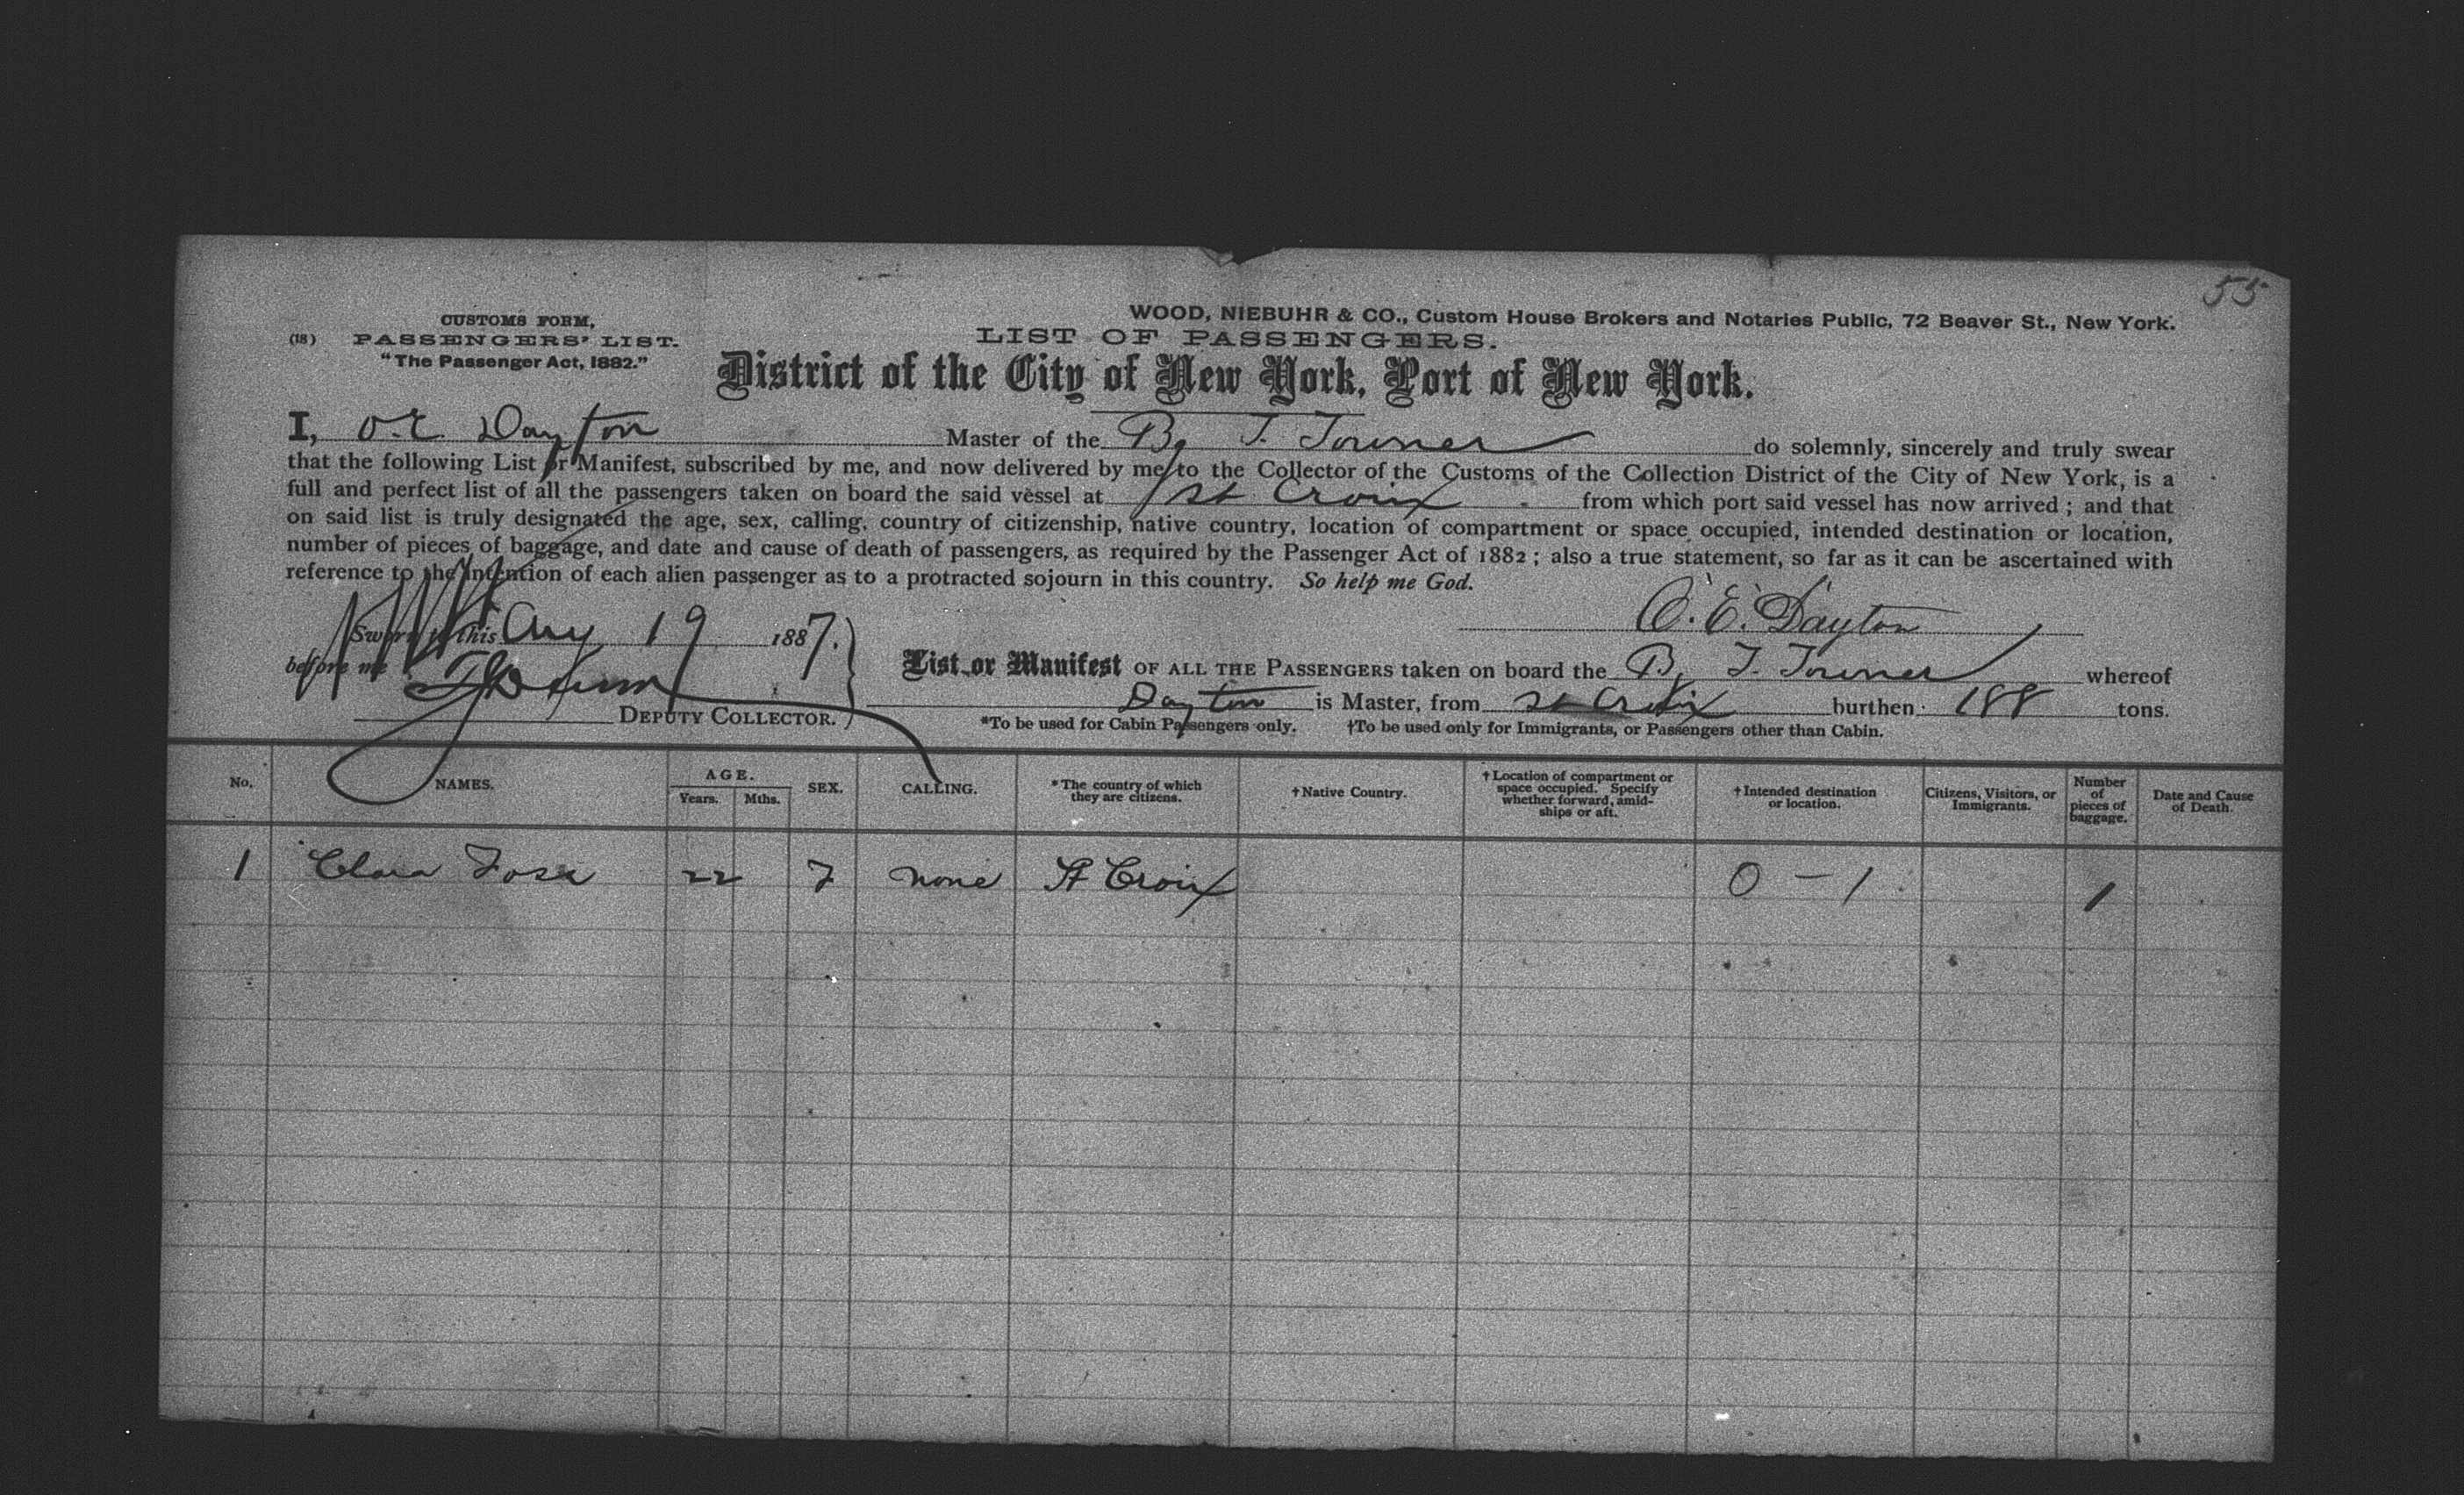 55
WOOD, NIEBUHR & CO., Custom House Brokers and Notaries Public, 72 Beaver St., New York.
CUSTOMS FORM,
(18) PASSENGERS' LIST.
"The Passenger Act, 1882."
LIST OF PASSENGERS.
District of the City of New York, Port of New York.
I, O. E. Dayton Master of the Bg T. Towner do solemnly, sincerely and truly swear
that the following List or Manifest, subscribed by me, and now delivered by me to the Collector of the Customs of the Collection District of the City of New York, is a
full and perfect list of all the passengers taken on board the said vessel at St Croix from which port said vessel has now arrived ; and that
on said list is truly designated the age, sex, calling, country of citizenship, native country, location of compartment or space occupied, intended destination or location,
number of pieces of baggage, and date and cause of death of passengers, as required by the Passenger Act of 1882 ; also a true statement, so far as it can be ascertained with
reference to the intention of each alien passenger as to a protracted sojourn in this country. So help me God.
O. E. Dayton
Sworn to this Aug 19 1887.
before me
DEPUTY COLLECTOR.
List or Manifest OF ALL THE PASSENGERS taken on board the Bg T. Towner whereof
Dayton is Master, from St Croix burthen 188 tons.
*To be used for Cabin Passengers only. †To be used only for Immigrants, or Passengers other than Cabin.
No. NAMES. AGE. Years. Mths. SEX. CALLING. *The country of which they are citizens. †Native Country. †Location of compartment or space occupied. Specify whether forward, amidships or aft. †Intended destination or location. Citizens, Visitors, or Immigrants. Number of pieces of baggage. Date and Cause of Death.
1 Clara 22 F none St Croix 0 - 1 1